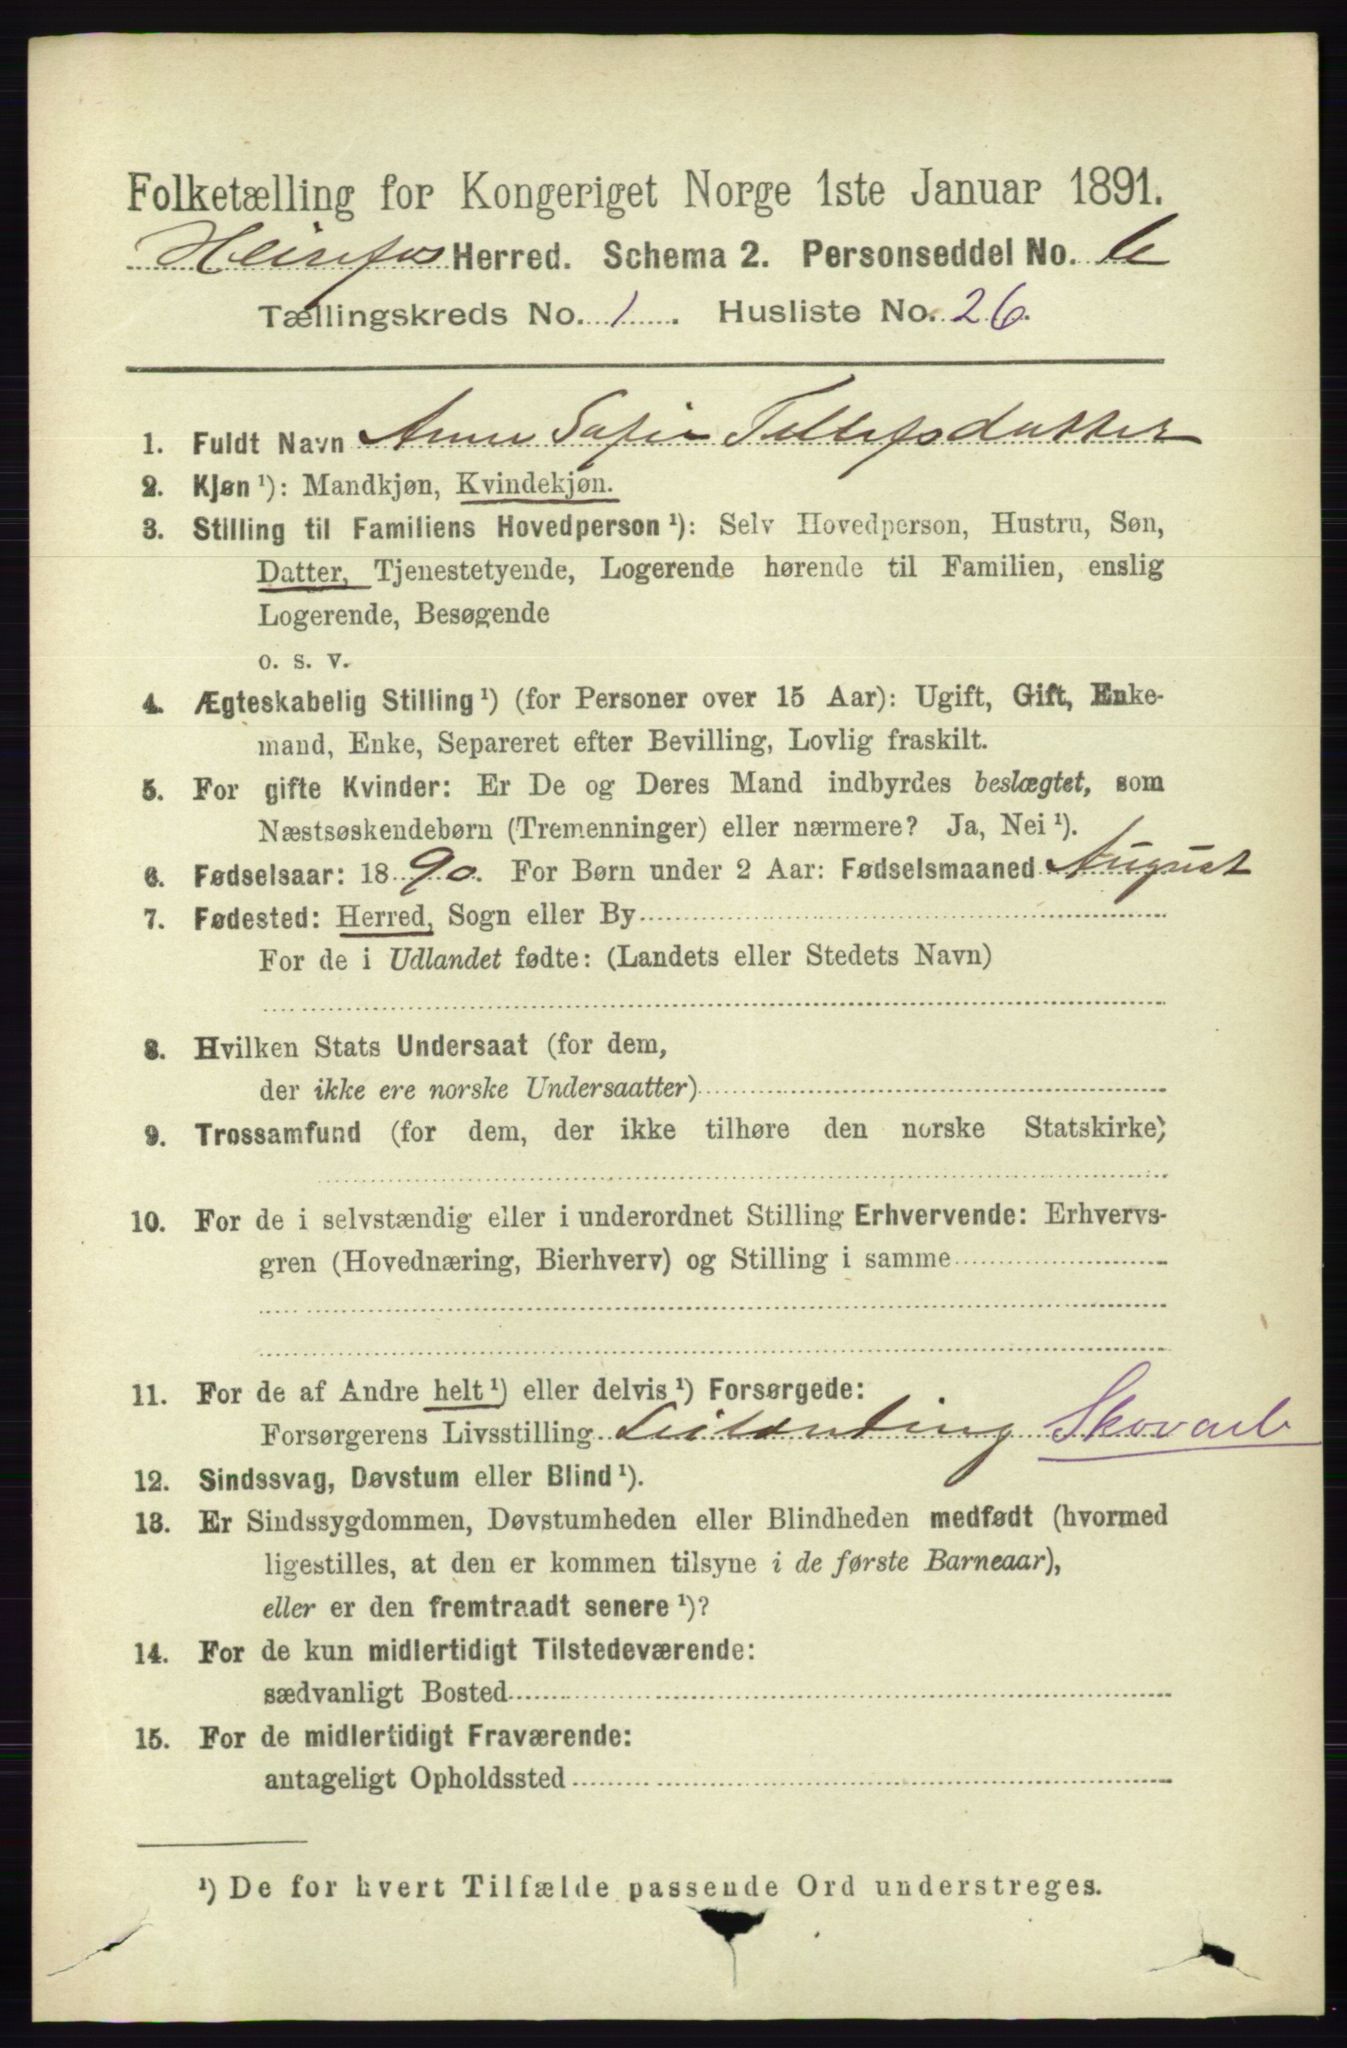 Folketælling for Kongeriget Norge 1ste Januar 1891.
Herred. Schema 2. Personseddel No. 6
Tællingskreds No. 1. Husliste No. 26.
1. Fuldt Navn Anne Sofie Tellefsdatter
2. Kjøn ¹): Mandkjøn, Kvindekjøn.
3. Stilling til Familiens Hovedperson ¹): Selv Hovedperson, Hustru, Søn,
Datter, Tjenestetyende, Logerende hørende til Familien, enslig
Logerende, Besøgende
o. s. v.
4. Ægteskabelig Stilling ¹) (for Personer over 15 Aar): Ugift, Gift, Enke-
mand, Enke, Separeret efter Bevilling, Lovlig fraskilt.
5. For gifte Kvinder: Er De og Deres Mand indbyrdes beslægtet, som
Næstsøskendebørn (Tremenninger) eller nærmere? Ja, Nei ¹).
6. Fødselsaar: 1890. For Børn under 2 Aar: Fødselsmaaned August
7. Fødested: Herred, Sogn eller By
For de i Udlandet fødte: (Landets eller Stedets Navn)
8. Hvilken Stats Undersaat (for dem,
der ikke ere norske Undersaatter)
9. Trossamfund (for dem, der ikke tilhøre den norske Statskirke)
10. For de i selvstændig eller i underordnet Stilling Erhvervende: Erhvervs-
gren (Hovednæring, Bierhverv) og Stilling i samme
11. For de af Andre helt ¹) eller delvis ¹) Forsørgede:
Forsørgerens Livsstilling Leilending Skovarb
12. Sindssvag, Døvstum eller Blind ¹).
13. Er Sindssygdommen, Døvstumheden eller Blindheden medfødt (hvormed
ligestilles, at den er kommen tilsyne i de første Barneaar),
eller er den fremtraadt senere ¹)?
14. For de kun midlertidigt Tilstedeværende:
sædvanligt Bosted
15. For de midlertidigt Fraværende:
antageligt Opholdssted
¹) De for hvert Tilfælde passende Ord understreges.